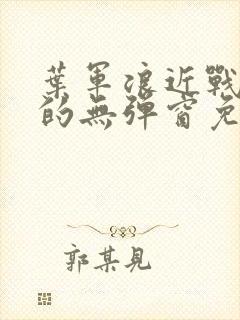 葉軍浪近戰
的無彈窗免
郭某見